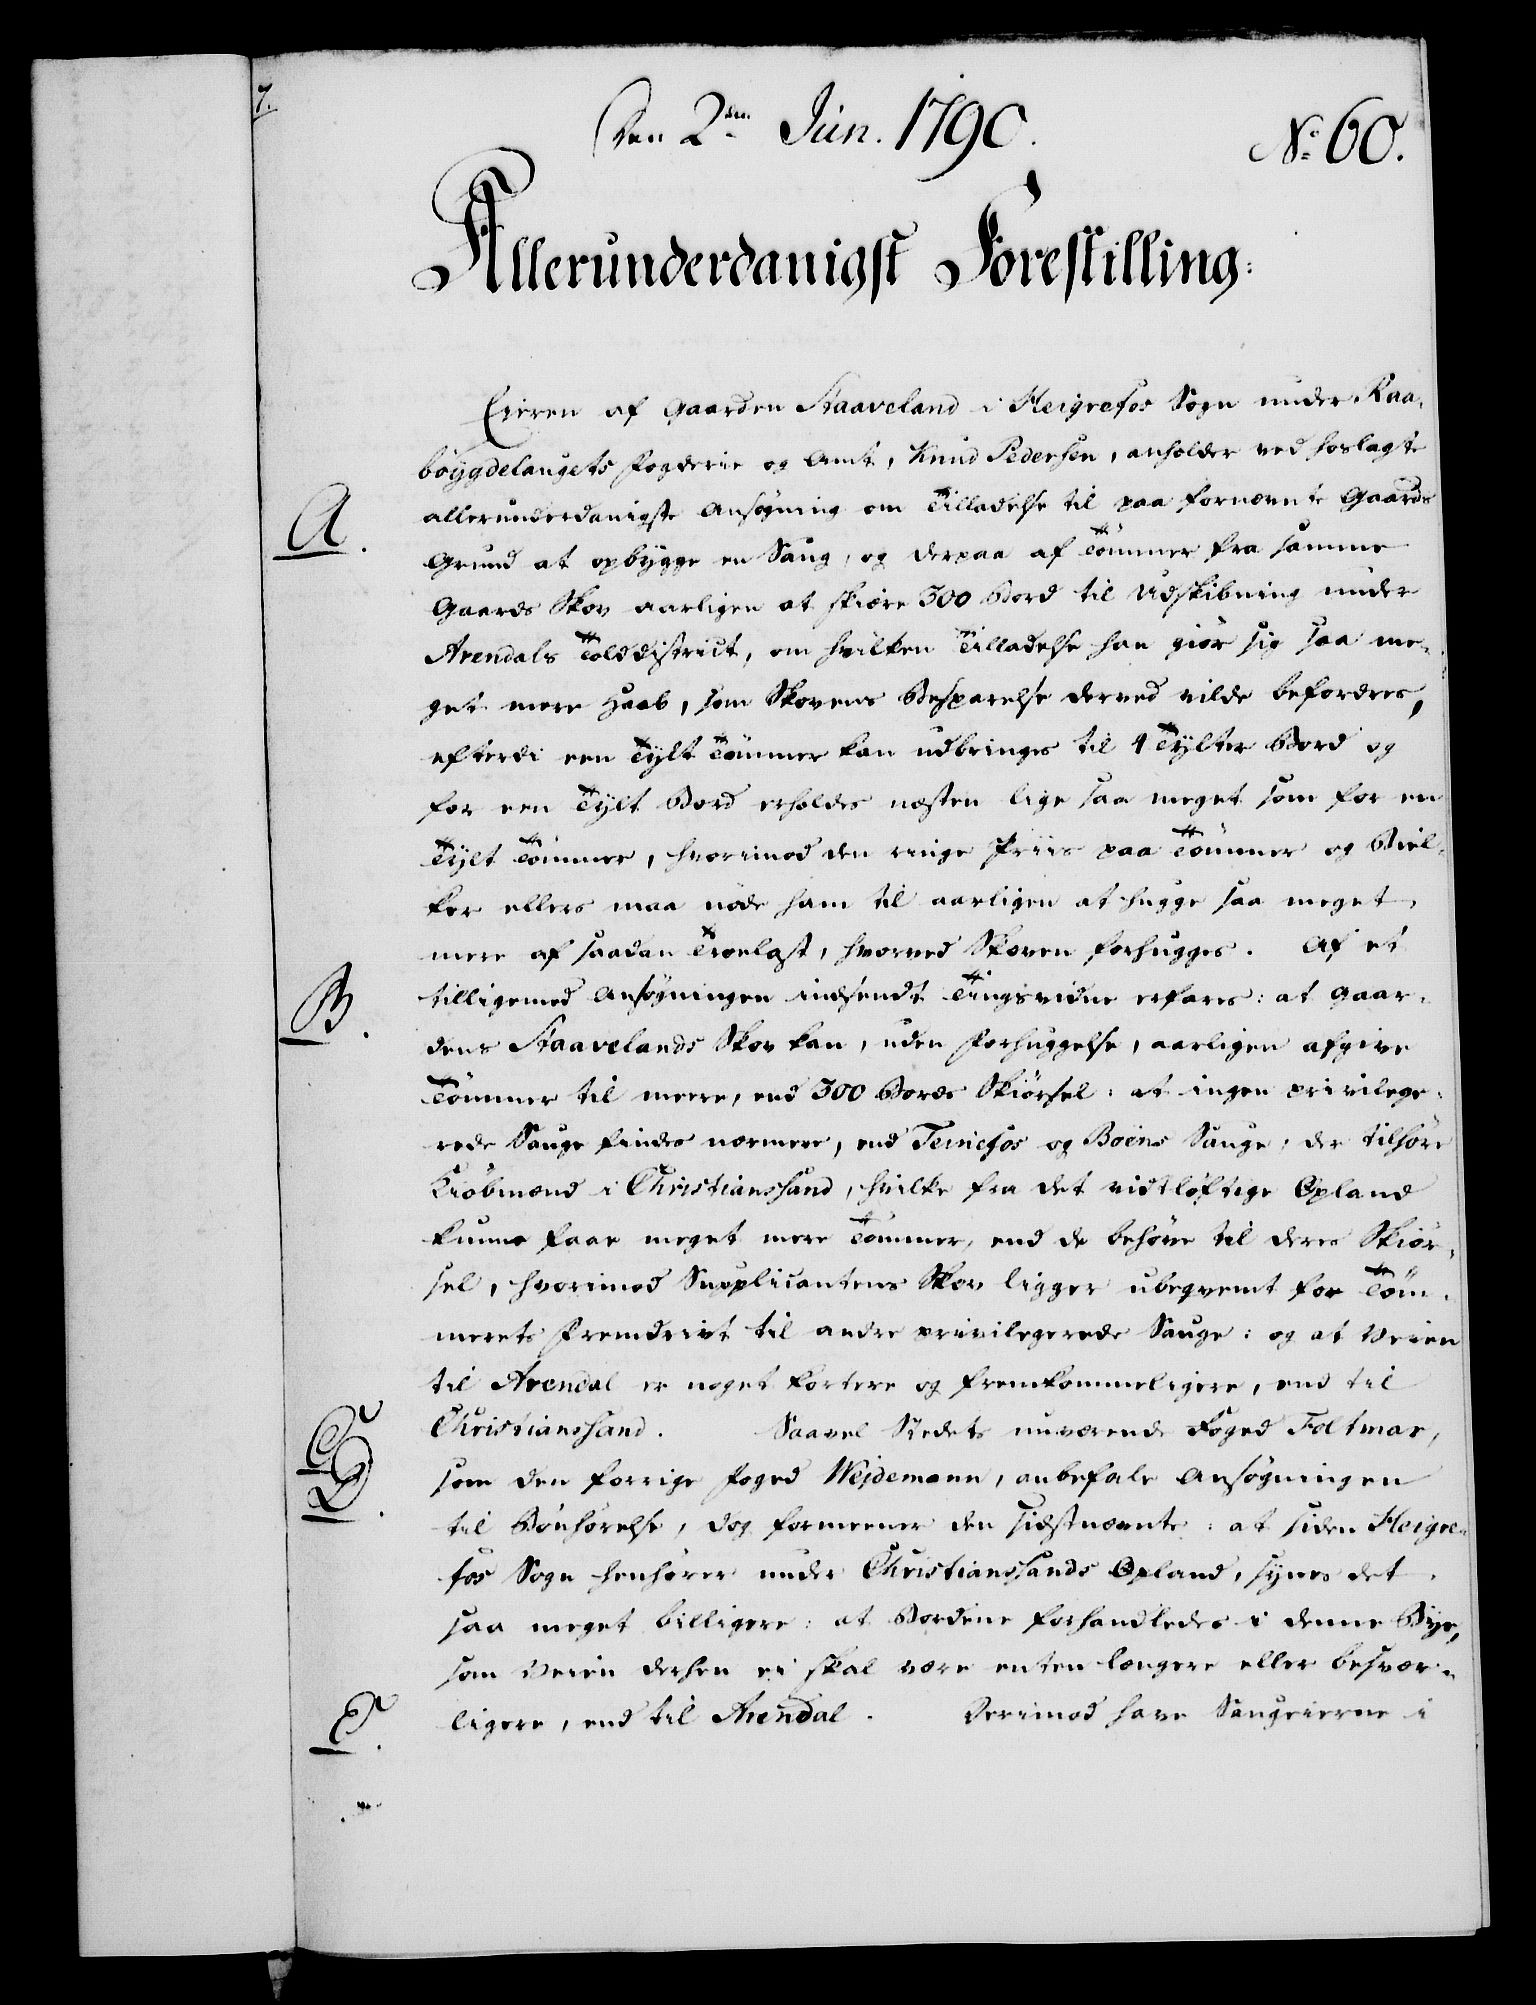 7.
Den 2den Jun. 1790.
No 60.
Allerunderdanigst Forestilling:
Eieren af Gaarden Staaveland i Heigrefos Sogn under Raa-
böygdelaugets Fogderie og Amt, Knud Pedersen, anholder ved hoslagte
A.
allerunderdanigste Ansøgning om Tilladelse til paa fornævnte Gaards
Grund at opbygge en Saug, og derpaa af Tömmer fra samme
Gaards Skov aarligen at skiære 300 Bord til Udskibning under
Arendals Tolddistrict, om hvilken Tilladelse han giör sig saa me-
get mere Haab, som Skovens Besparelse derved vilde befordres,
efterdi een Tylt Tömmer kan udbringes til 4 Tylter Bord og
for een Tylt Bord erholdes næsten lige saa meget som for en
Tylt Tömmer, hvorimod den ringe Priis paa Tömmer og Biel-
ker ellers maa nöde ham til aarligen at hugge saa meget
mere af saadan Trælast, hvorved Skoven forhugges. Af et
B.
tilligemed Ansøgningen indsendt Tingsvidne erfares: at Gaar-
dens Staavelands Skov kan, uden Forhuggelse, aarligen afgive
Tömmer til meere, end 300 Bords Skiörsel: at ingen privilege-
rede Sauge findes nærmere, end Teinefos og Boens Sauge, der tilhöre
Kiöbmænd i Christianssand, hvilke fra det vidtløftige Opland
kunne faae meget mere Tömmer, end de behöve til deres Skiör-
sel, hvorimod Supplicantens Skov ligger ubeqvemt for Töm-
merets Fremdrivt til andre privilegerede Sauge: og at Veien
til Arendal er noget kortere og fremkommeligere, end til
C.
Christianssand. Saavel Stedets nuværende Foged Foltmar,
D.
som den forrige Foged Weidemann, anbefale Ansøgningen
til Bönhörelse, dog formeener den sidstnævnte: at siden Heigre-
fos Sogn henhörer under Christianssands Opland, synes det
saa meget billigere: at Bordene forhandledes i denne Bye,
som Veien derhen ei skal være enten længere eller besvær-
E.
ligere, end til Arendal. Derimod have Saugeierne i